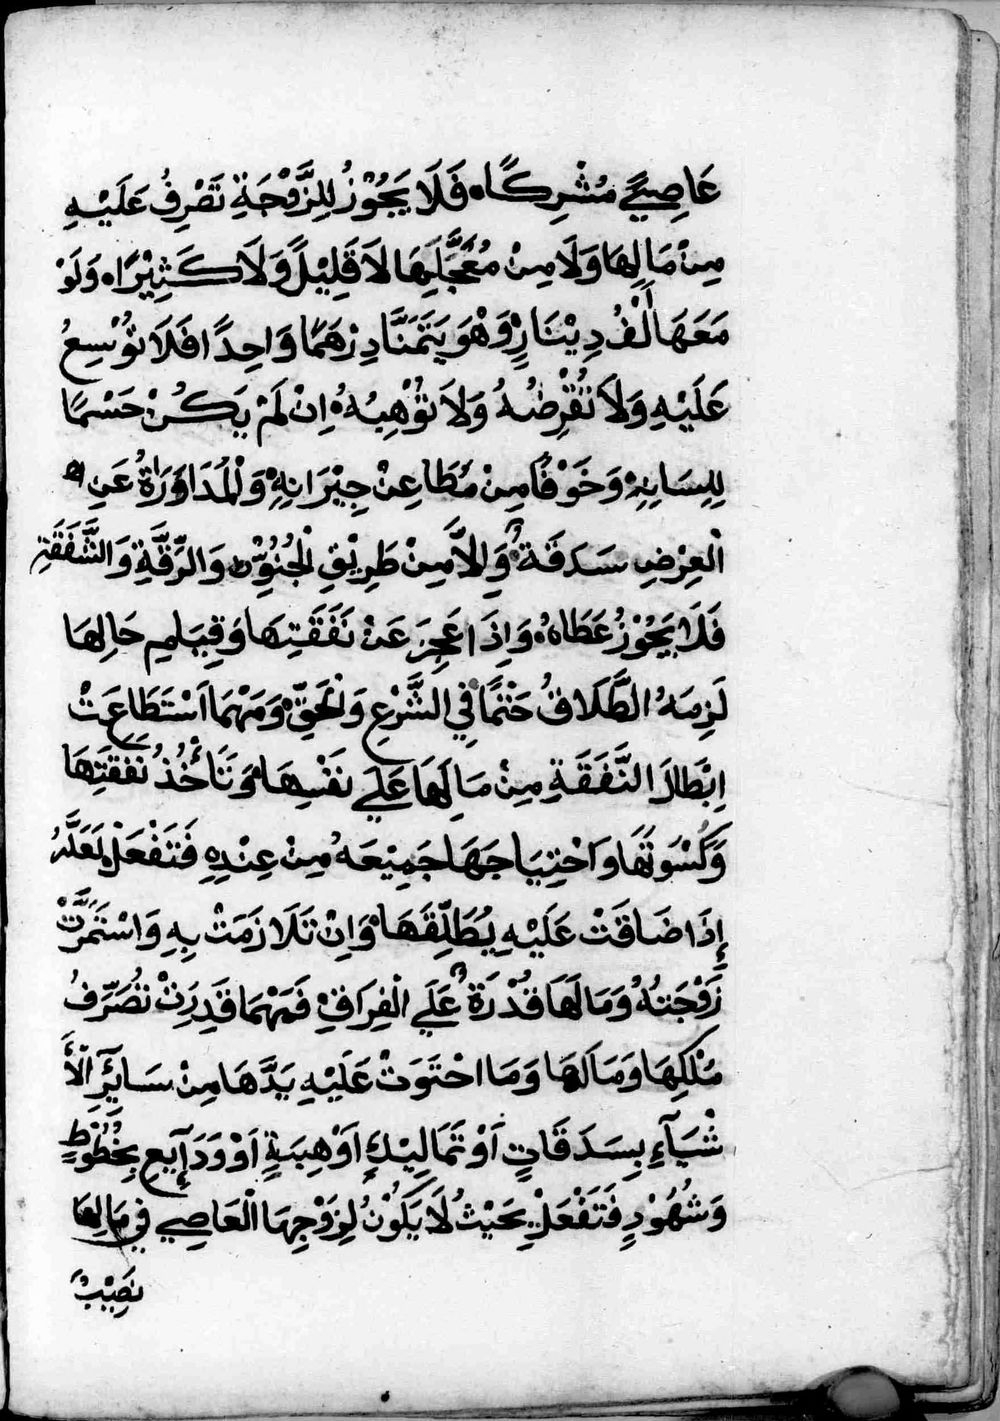 عَاصِيًي مُشْرِكًا، فَلَا يَجُوْزُ لِلزَّوْجَةِ تَصْرِفُ عَلَيْهِ
مِنْ مَالِهَا وَلَا مِنْ مُعَجَّلِهَا لَا قَلِيْلً وَلَا كَثِيْرًا، وَلَوْ
مَعَهَا أَلْفُ دِيْنَارٍ وَهْوَ يَتَمَنَّا دِرْهَمًا وَاحِدًا فَلَا تُوْسِعُ
عَلَيْهِ وَلَا تُقْرِضُهُ وَلَا تُوْهِبُهُ، اِنْ لَمْ يَكُنْ حَسْمًا
لِلِسَانِهِ وَخَوْفًا مِنْ مَطَاعِنْ جِيْرَانِهِ وَالْمُدَاوَرَاةُ عَنِ
الْعِرْضِ سَدَقَة، وَاِلَّا مِنْ طَرِيْقِ الْجُنُوْنِ وَالرِّقَّةِ وَالشَّفَقَةِ
فَلَا يَجُوْزُ عَطَاهُ، وَاِذَا عَجِزَ عَنْ نَفَقَتِهَا وَقِيَامِ حَالِهَا
لَزِمَهُ الطَّلَاقُ حَتْمًا فِي الشَّرْعِ وَالْحَقِّ، وَمَهْمَا اَسْتَطَاعَتْ
اِبْطَالَ النَّفَقَةِ مِنْ مَالِهَا عَلَي نَفْسِهَا، وَتَأْخُذُ نَفَقَتِهَا
وَكُسْوَتَهَا وَاحْتِيَاجَهَا جَمِيْعَهُ مِنْ عِنْدِهِ فَتَفْعَلْ لَعَلَّهُ
إِذَا ضَاقَتْ عَلَيْهِ يُطَلِّقَهَا، وَاِنْ تَلَازَمَتْ بِهِ وَاسْتَمَرَّتْ
زَوْجَتُهُ وَمَا لَهَا قُدْرَة عَلَي الْفِرَاقِ فَمَهْمَا قَدِرَتْ تُصَرِّفُ
مُلْكِهَا وَمَالَهَا وَمَا احْتَوَتْ عَلَيْهِ يَدَّهَا مِنْ سَايِرِ الْأَ
شْيَآءِ بِسَدَقَاتٍ اَوْ تَمَالِيْكٍ اَوْ هِبَةٍ اَوْ وَدَآيِعِ بِخُطُوْطٍ
وَشُهُوْدٍ فَتَفْعَلْ بِحَيْثُ لَا يَكُوْنُ لِزَوْجِهَا الْعَاصِي فِي مَالِهَا
نَصِيْبٌ